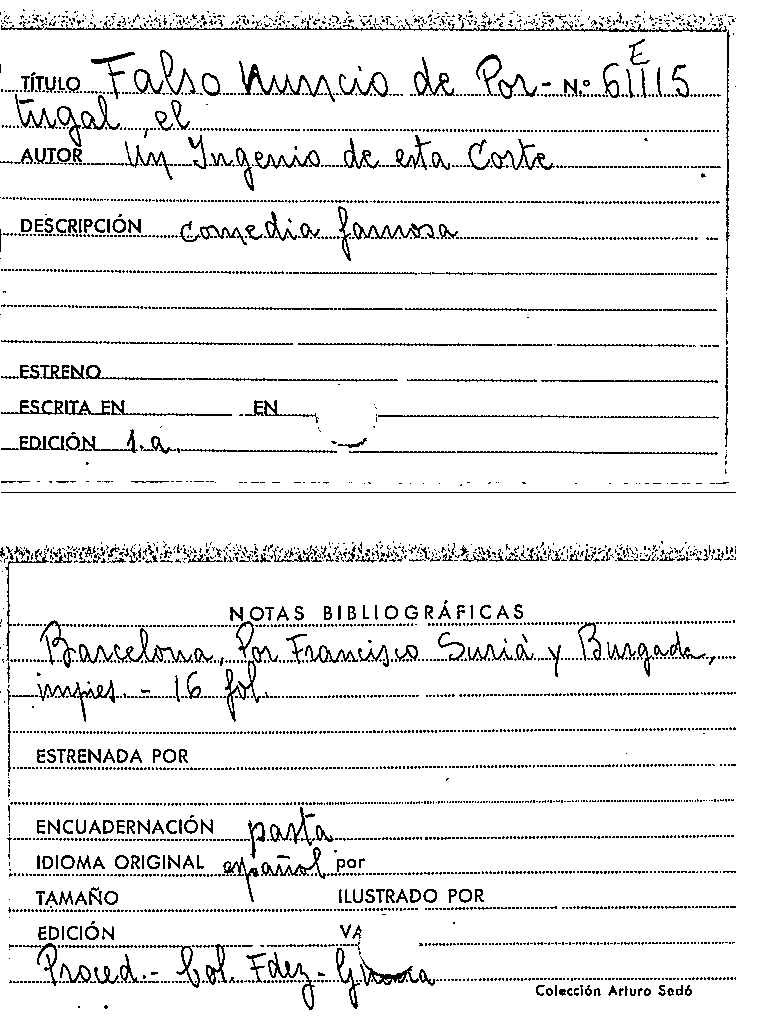 E
TÍTULO Falso Nuncio de Por- N.º 61115
tugal, el
AUTOR Un Ingenio de esta Corte
DESCRIPCIÓN comedia famosa
ESTRENO
ESCRITA EN EN
EDICIÓN 1.a.
NOTAS BIBLIOGRÁFICAS
Barcelona, Por Francisco Suriá y Burgada,
impres. - 16 fol.
ESTRENADA POR
ENCUADERNACIÓN pasta
IDIOMA ORIGINAL español por
TAMAÑO ILUSTRADO POR
EDICIÓN VA
Proced.- Col. Fdez-
Colección Arturo Sedó